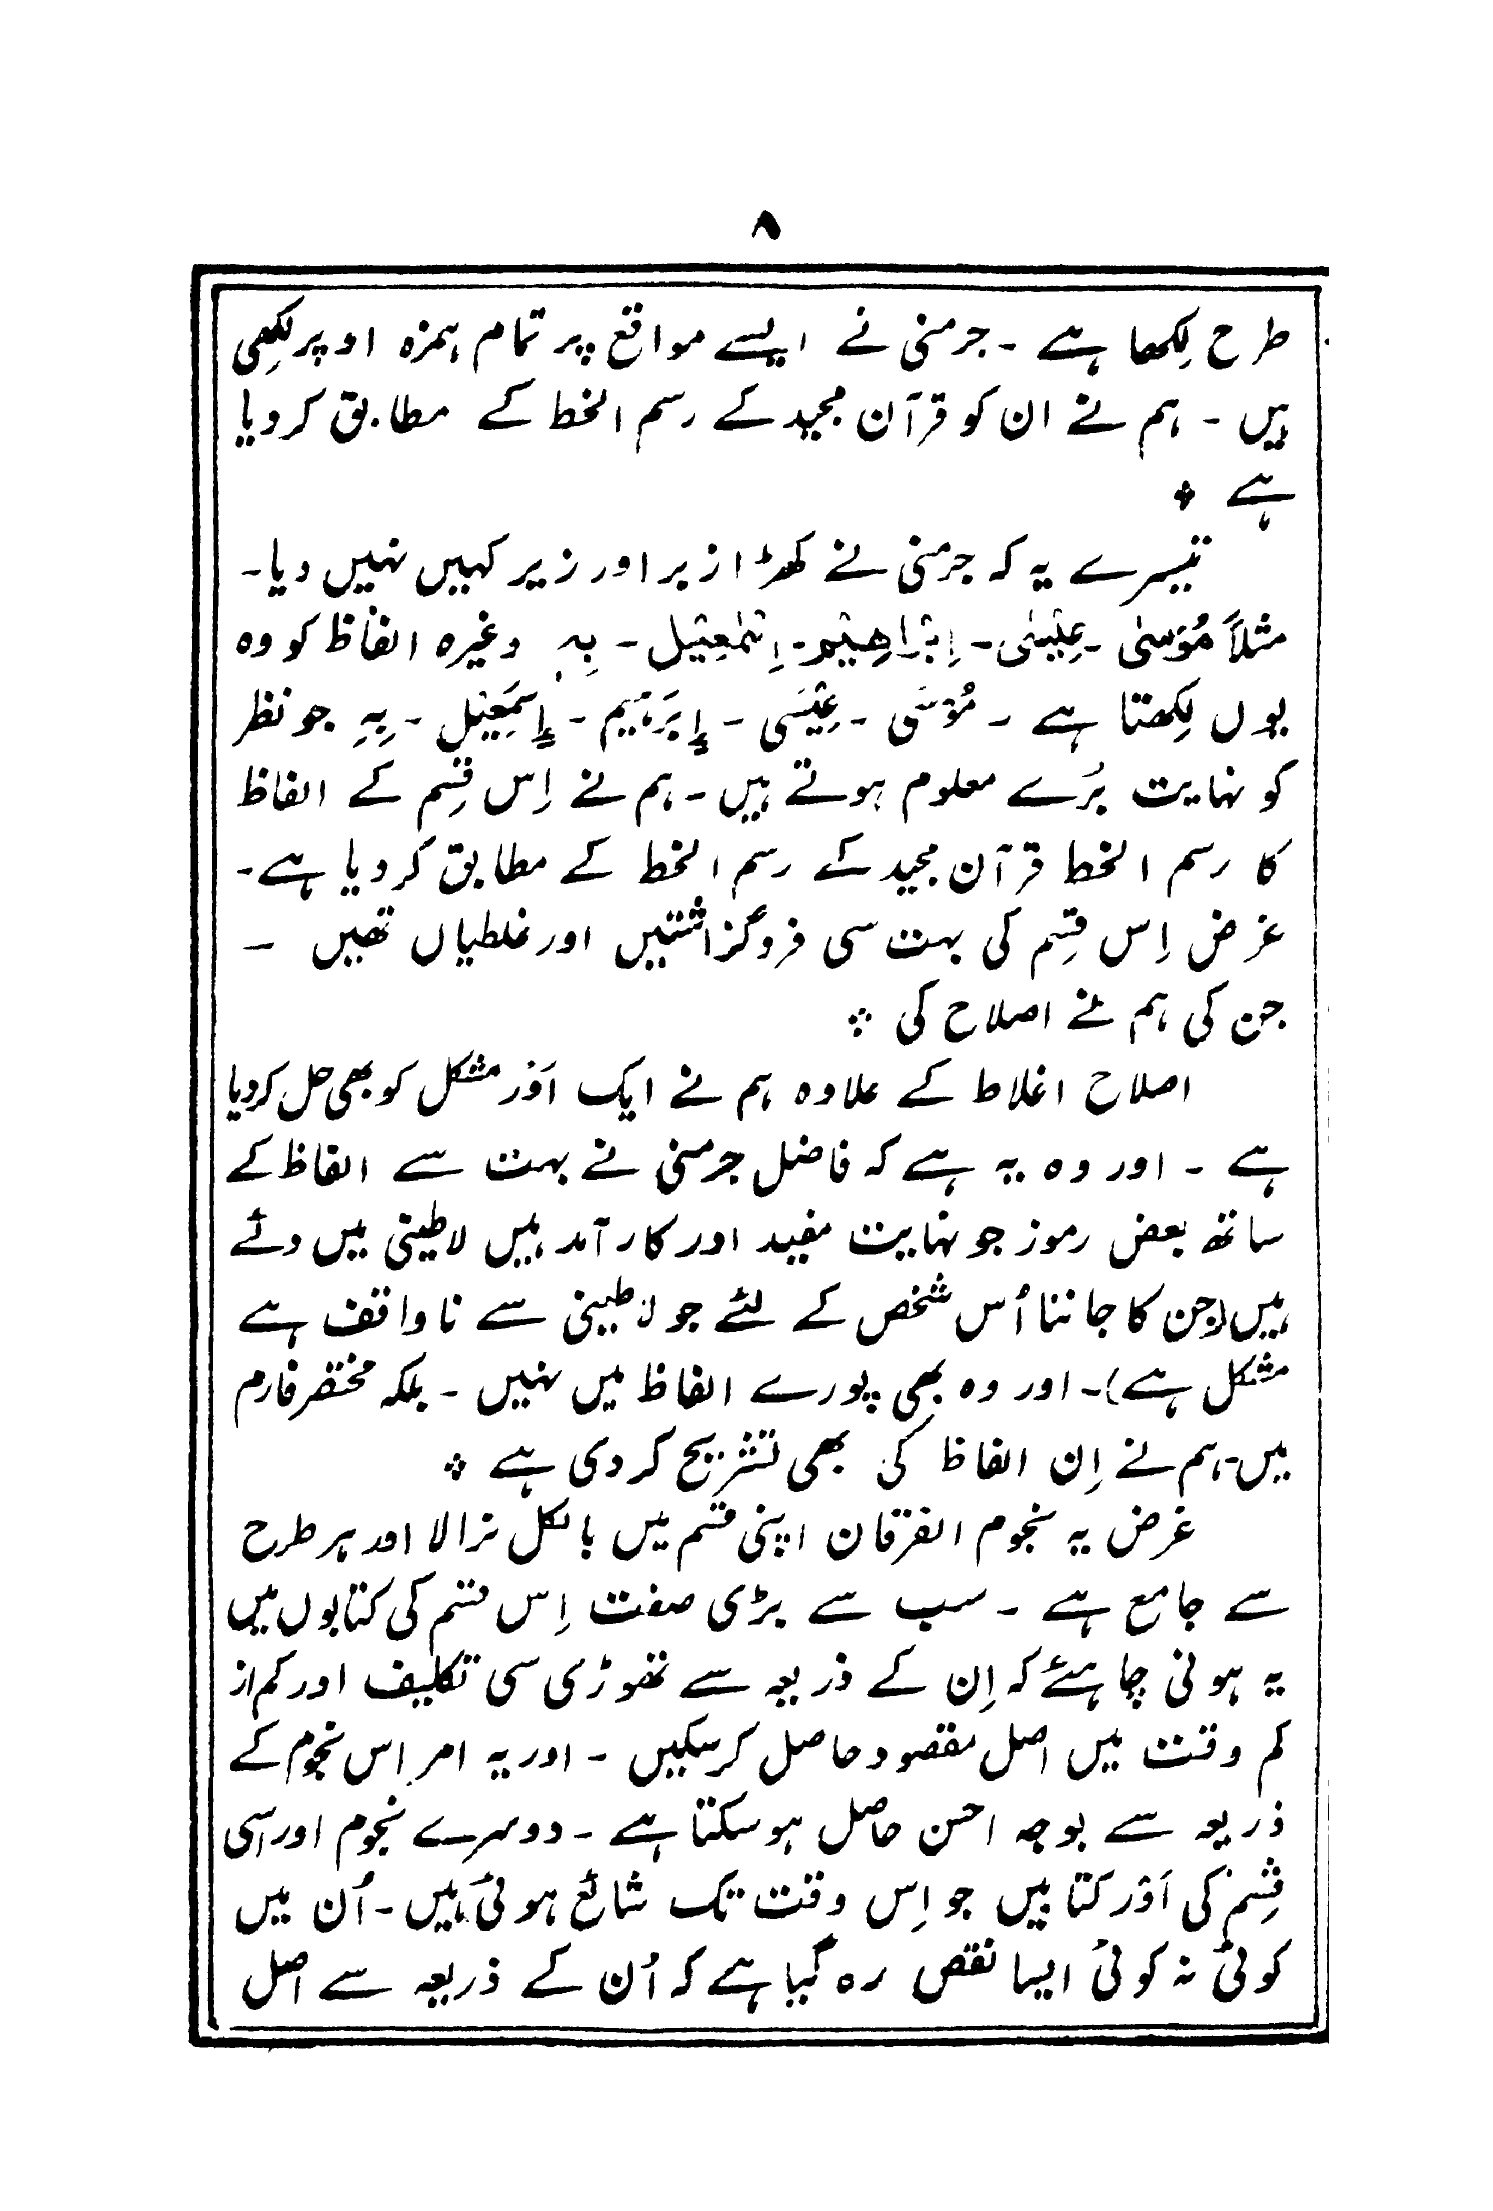 ۸
طرح لِکھا ہے ۔ جرمنی نے ایسے مواقع پر تمام ہمزہ اوپر لِکھی
ہیں ۔ ہم نے ان کو قرآن مجید کے رسم الخط کے مطابق کردیا
ہے ۞
تیسرے یہ کہ جرمنی نے کھڑا زبر اور زیر کہیں نہیں دیا۔
مثلاً مُوْسٰی ۔ عِیْسٰی ۔ اِبْرٰاهِیْم ۔ اِسْمٰعِیْل ۔ بِهٖ وغیرہ الفاظ کو وہ
یوں لِکھتا ہے ۔ مُوْسَی ۔ عِیْسَی ۔ إِبَرٰهِیم ۔ إِسَمَعِیْل ۔ بِهِ جو نظر
کو نہایت بُرے معلوم ہوتے ہیں ۔ ہم نے اِس قِسم کے الفاظ
کا رسم الخط قرآن مجید کے رسم الخط کے مطابق کردیا ہے۔
غرض اِس قِسم کی بہت سی فروگزاشتیں اور غلطیاں تھیں ۔
جن کی ہم نے اصلاح کی ۞
اصلاح اغلاط کے علاوہ ہم نے ایک اَوْر مشکل کو بھی حل کردیا
ہے ۔ اور وہ یہ ہے کہ فاضل جرمنی نے بہت سے الفاظ کے
ساتھ بعض رموز جو نہایت مفید اور کار آمد ہیں لاطینی میں دئے
ہیں (جن کا جاننا اُس شخص کے لئے جو لاطینی سے ناواقف ہے
مشکل ہے)۔ اور وہ بھی پورے الفاظ میں نہیں ۔ بلکہ مختصر فارم
میں۔ ہم نے اِن الفاظ کی بھی تشریح کردی ہے ۞
غرض یہ نجوم الفرقان اپنی قسم میں بالکل نرالا اور ہر طرح
سے جامع ہے ۔ سب سے بڑی صفت اِس قسم کی کتابوں میں
یہ ہونی چاہئے کہ اِن کے ذریعہ سے تھوڑی سی تکلیف اور کم از
کم وقت میں اصل مقصود حاصل کرسکیں ۔ اور یہ امر اس نجوم کے
ذریعہ سے بوجہ احسن حاصل ہوسکتا ہے ۔ دوسرے نجوم اور اسی
قِسْم کی اَوْر کتابیں جو اِس وقت تک شائع ہوئی ہیں ۔ اُن میں
کوئی نہ کوئی ایسا نقص رہ گیا ہے کہ اُن کے ذریعہ سے اصل